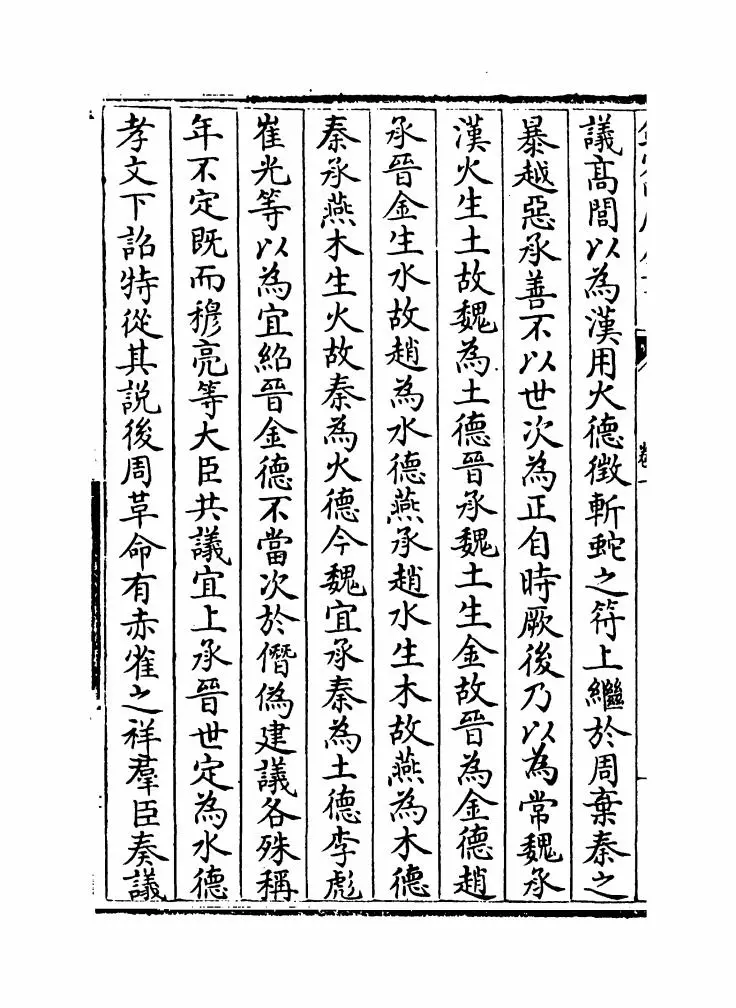 議髙閭以為漢用火德徵斬蛇之符上繼於周棄秦之
暴越惡承善不以世次為正自時厥後乃以為常魏承
漢火生土故魏為土德晉承魏土生金故晉為金德趙
承晉金生水故趙為水德燕承趙水生木故燕為木德
秦承燕木生火故秦為火德今魏宜承秦為土德李彪
崔光等以為宜紹晉金德不當次於僭偽建議各殊稱
年不定既而穆亮等大臣共議宜上承晉世定為水德
孝文下詔特從其説後周革命有赤雀之祥羣臣奏議